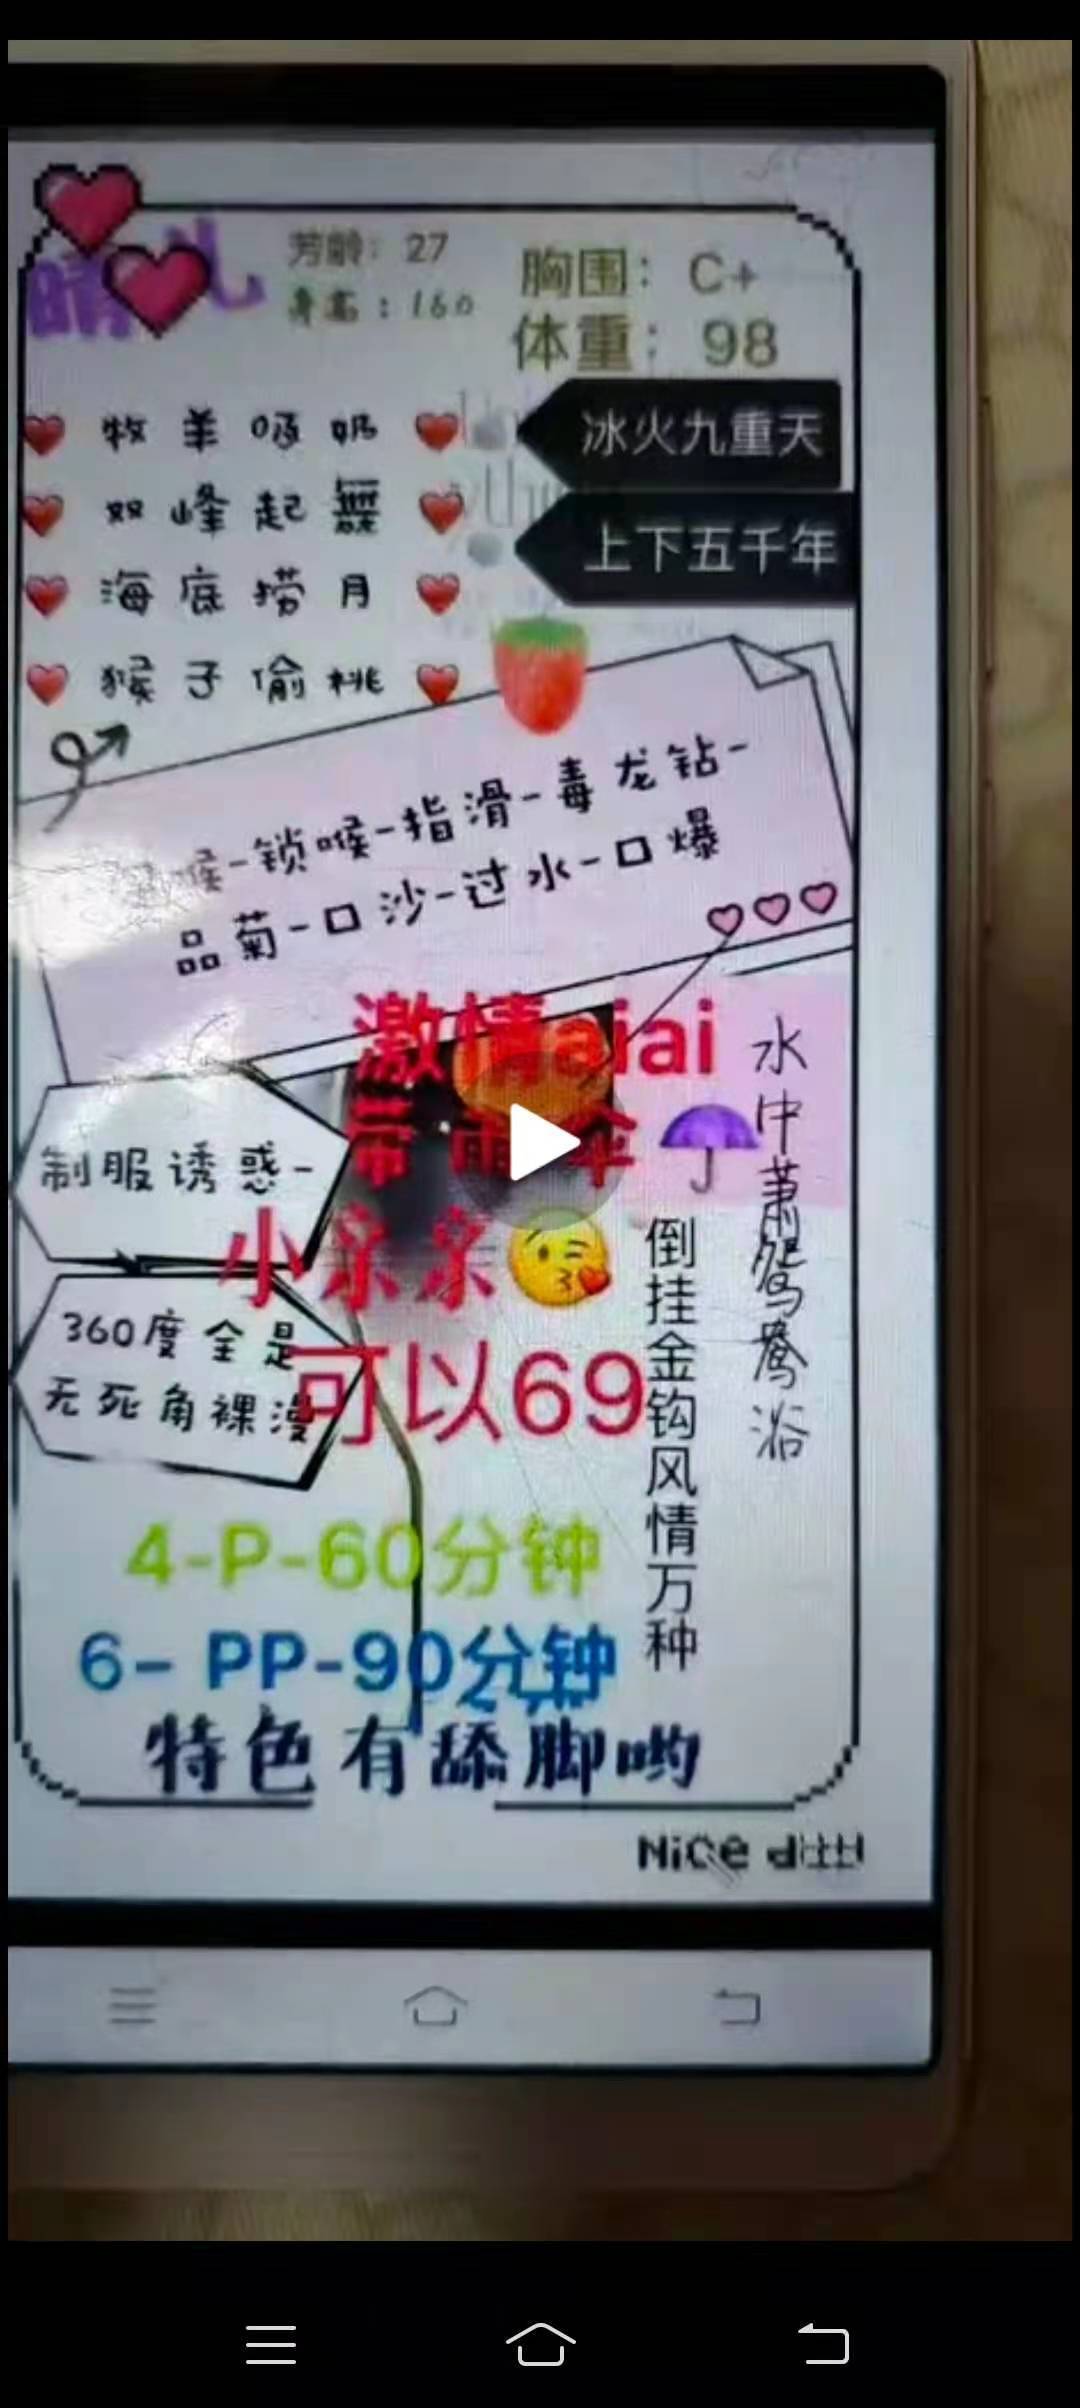 芳龄：27
身高：160
胸围：C+
体重：98
牧羊咂奶
双峰起舞
海底捞月
猴子偷桃
冰火九重天
上下五千年
喉-锁喉-指滑-毒龙钻-
品菊-口沙-过水-口爆
激情aiai
带雨伞
小亲亲
可以69
制服诱惑-
360度全是
无死角裸漫
水中萧鸳鸯浴
倒挂金钩风情万种
4-P-60分钟
6-PP-90分钟
特色有舔脚哟
Nice